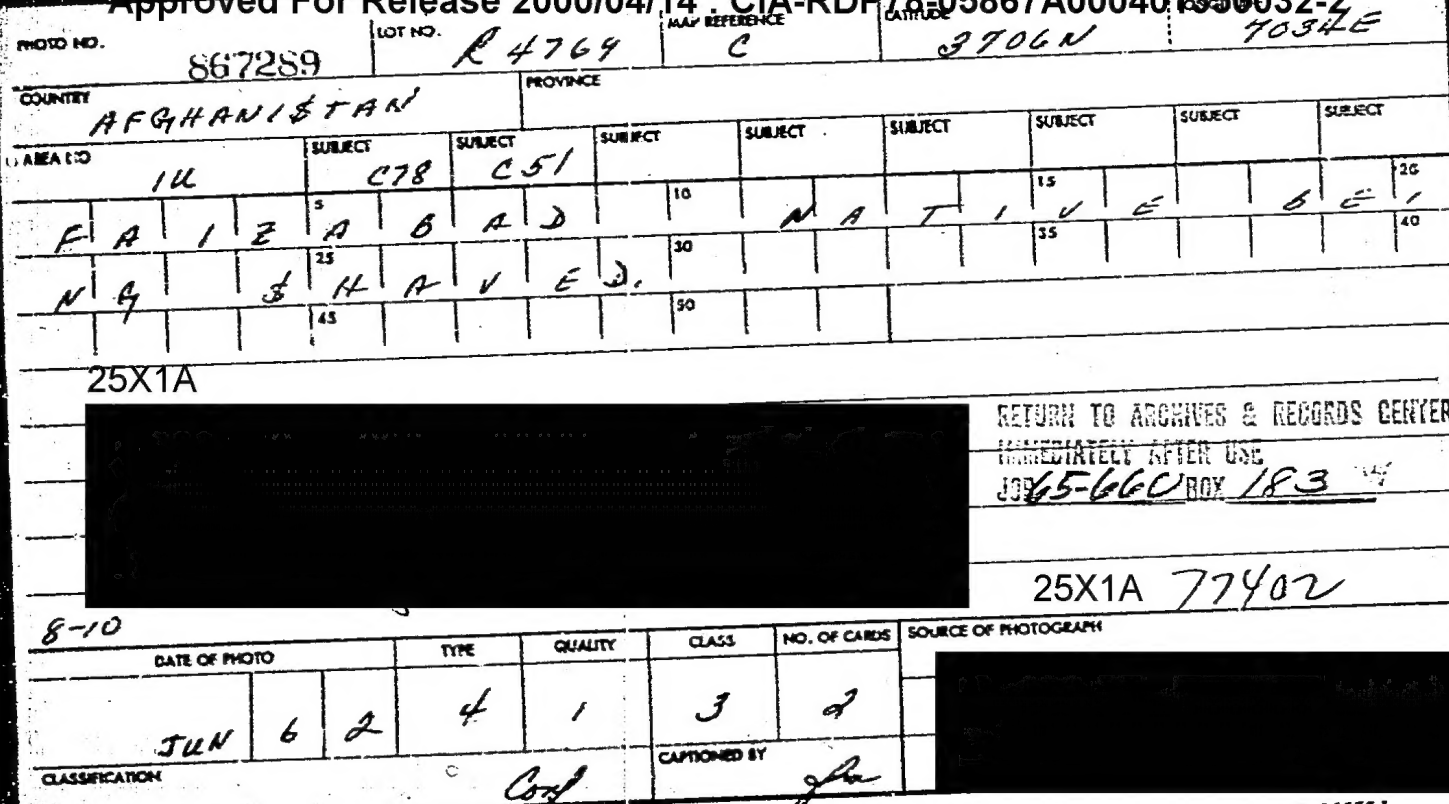 Approved For Release 2000/04/14 : CIA-RDP78-05867A000401950032-2
PHOTO NO. 867289 LOT NO. R 4764 MAP REFERENCE C LATITUDE 3706N 7034E
COUNTRY AFGHANI$TAN PROVINCE
AREA NO 1U SUBJECT C78 SUBJECT C51 SUBJECT SUBJECT SUBJECT SUBJECT SUBJECT SUBJECT
5 10 15 20
FAIZABAD NATIVE BEI
25 30 35 40
NG $HAVED.
45 50
25X1A
RETURN TO ARCHIVES & RECORDS CENTER
IMMEDIATELY AFTER USE
JOB 65-660 BOX 183
25X1A 77402
8-10
DATE OF PHOTO TYPE QUALITY CLASS NO. OF CARDS SOURCE OF PHOTOGRAPH
JUN 6 2 4 1 3 2
CLASSIFICATION Conf CAPTIONED BY